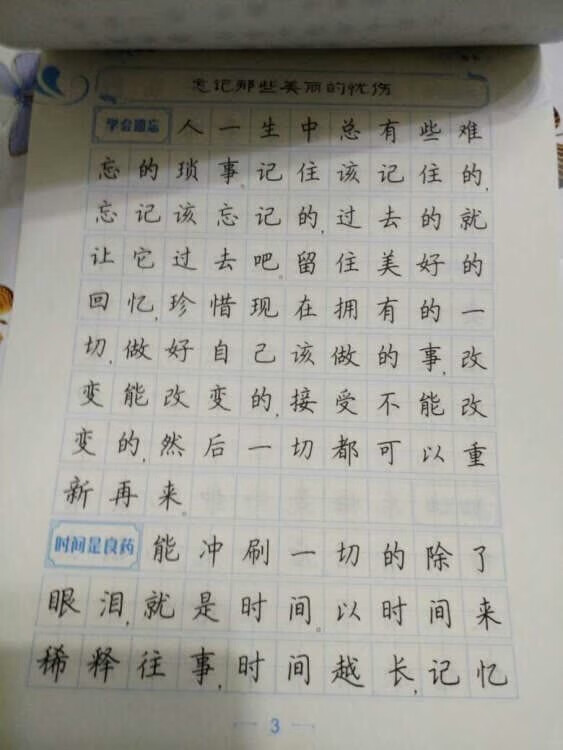 忘记那些美丽的忧伤
学会遗忘 人一生中总有些难
忘的琐事。记住该记住的,
忘记该忘记的,过去的就
让它过去吧。留住美好的
回忆,珍惜现在拥有的一
切,做好自己该做的事,改
变能改变的,接受不能改
变的,然后一切都可以重
新再来。
时间是良药 能冲刷一切的除了
眼泪,就是时间。以时间来
稀释往事,时间越长,记忆
3